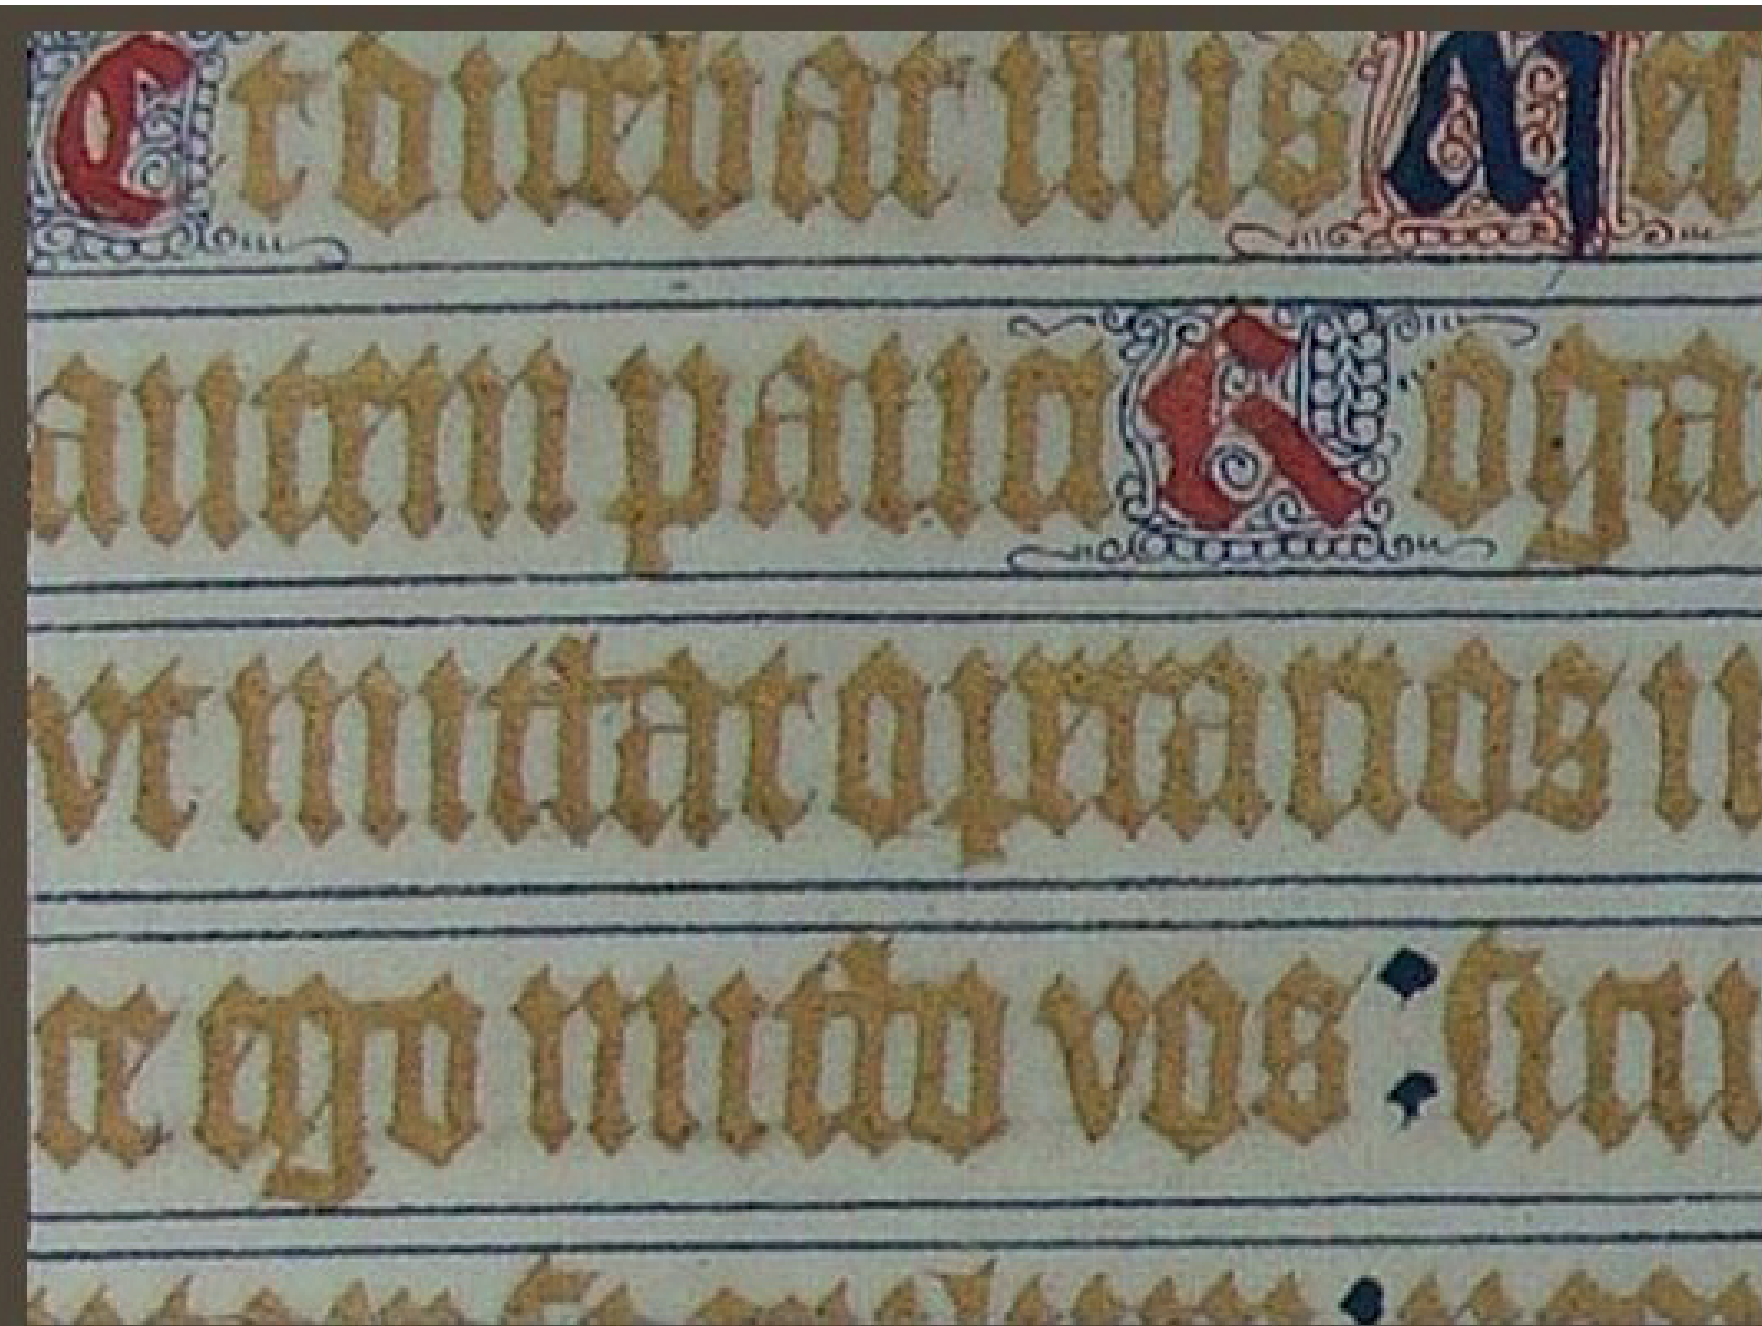 Et dicebat illis Mes
autem pauci Roga
vt mittat operarios in
ce ego mitto vos : sicu